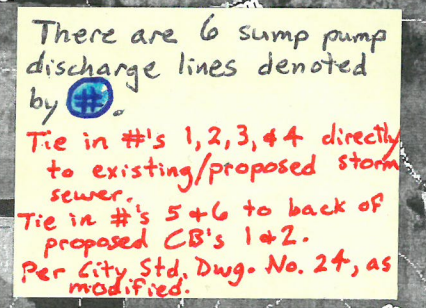 There are 6 sump pump
discharge lines denoted
by #.
Tie in #'s 1, 2, 3, & 4 directly
to existing/proposed storm
sewer.
Tie in #'s 5 & 6 to back of
proposed CB's 1 & 2.
Per City Std. Dwg. No. 24, as
modified.